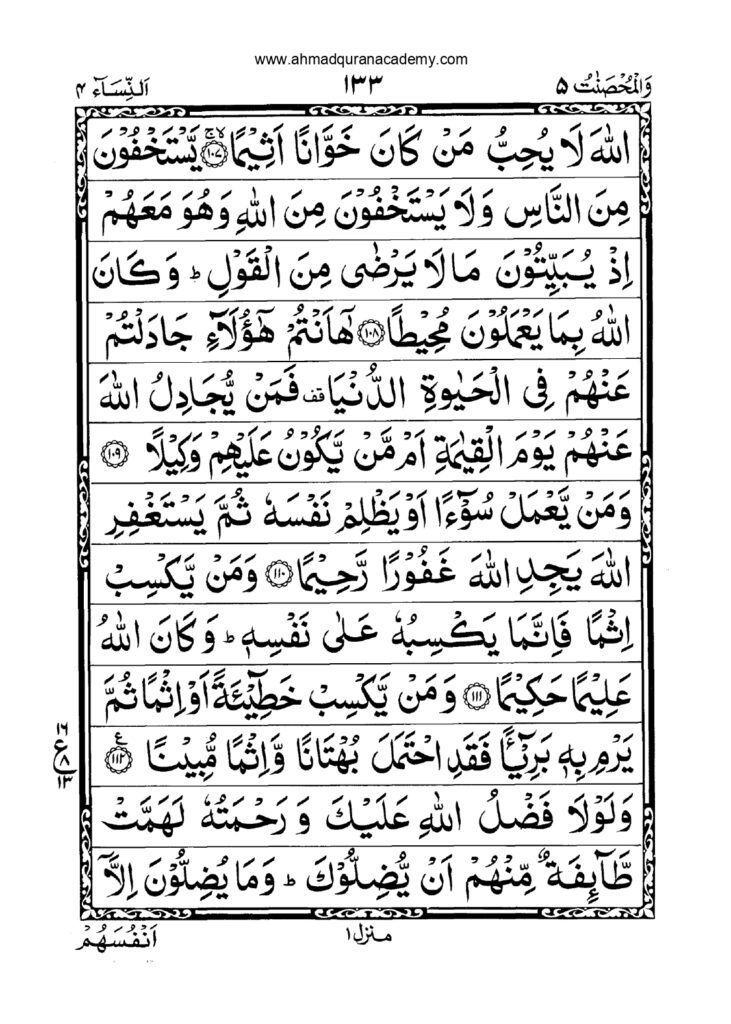 www.ahmadquranacademy.com
وَالْمُحْصَنٰتُ ۵
۱۳۳
اَلنِّسَآء ۴
اللّٰهَ لَا يُحِبُّ مَنْ كَانَ خَوَّانًا اَثِيْمًا ۙۚ ۱۰۷ يَّسْتَخْفُوْنَ
مِنَ النَّاسِ وَلَا يَسْتَخْفُوْنَ مِنَ اللّٰهِ وَهُوَ مَعَهُمْ
اِذْ يُبَيِّتُوْنَ مَا لَا يَرْضٰى مِنَ الْقَوْلِ ؕ وَكَانَ
اللّٰهُ بِمَا يَعْمَلُوْنَ مُحِيْطًا ۱۰۸ هٰۤاَنْتُمْ هٰۤؤُلَآءِ جَادَلْتُمْ
عَنْهُمْ فِى الْحَيٰوةِ الدُّنْيَا قف فَمَنْ يُّجَادِلُ اللّٰهَ
عَنْهُمْ يَوْمَ الْقِيٰمَةِ اَمْ مَّنْ يَّكُوْنُ عَلَيْهِمْ وَكِيْلًا ۱۰۹
وَمَنْ يَّعْمَلْ سُوْٓءًا اَوْ يَظْلِمْ نَفْسَهٗ ثُمَّ يَسْتَغْفِرِ
اللّٰهَ يَجِدِ اللّٰهَ غَفُوْرًا رَّحِيْمًا ۱۱۰ وَمَنْ يَّكْسِبْ
اِثْمًا فَاِنَّمَا يَكْسِبُهٗ عَلٰى نَفْسِهٖ ؕ وَكَانَ اللّٰهُ
عَلِيْمًا حَكِيْمًا ۱۱۱ وَمَنْ يَّكْسِبْ خَطِيْٓئَةً اَوْ اِثْمًا ثُمَّ
يَرْمِ بِهٖ بَرِيْٓـًٔا فَقَدِ احْتَمَلَ بُهْتَانًا وَّاِثْمًا مُّبِيْنًا ع ۱۱۲
۱۶ ع ۸ ۱۳
وَلَوْلَا فَضْلُ اللّٰهِ عَلَيْكَ وَرَحْمَتُهٗ لَهَمَّتْ
طَّآئِفَةٌ مِّنْهُمْ اَنْ يُّضِلُّوْكَ ؕ وَمَا يُضِلُّوْنَ اِلَّآ
منزل ۱
اَنْفُسَهُمْ